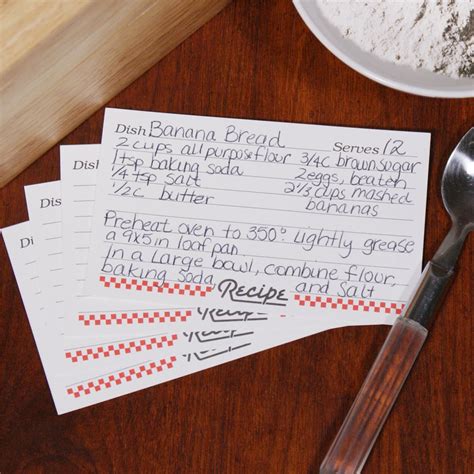 Dish Banana Bread Serves 12
2 cups all purpose flour 3/4c brown sugar
1 tsp baking soda 2 eggs, beaten
1/4 tsp salt 2 1/3 cups mashed
1/2 c butter bananas
Preheat oven to 350°. Lightly grease
a 9x5 in loaf pan.
In a large bowl, combine flour,
baking soda Recipe and salt
Dish
Recipe
Recipe